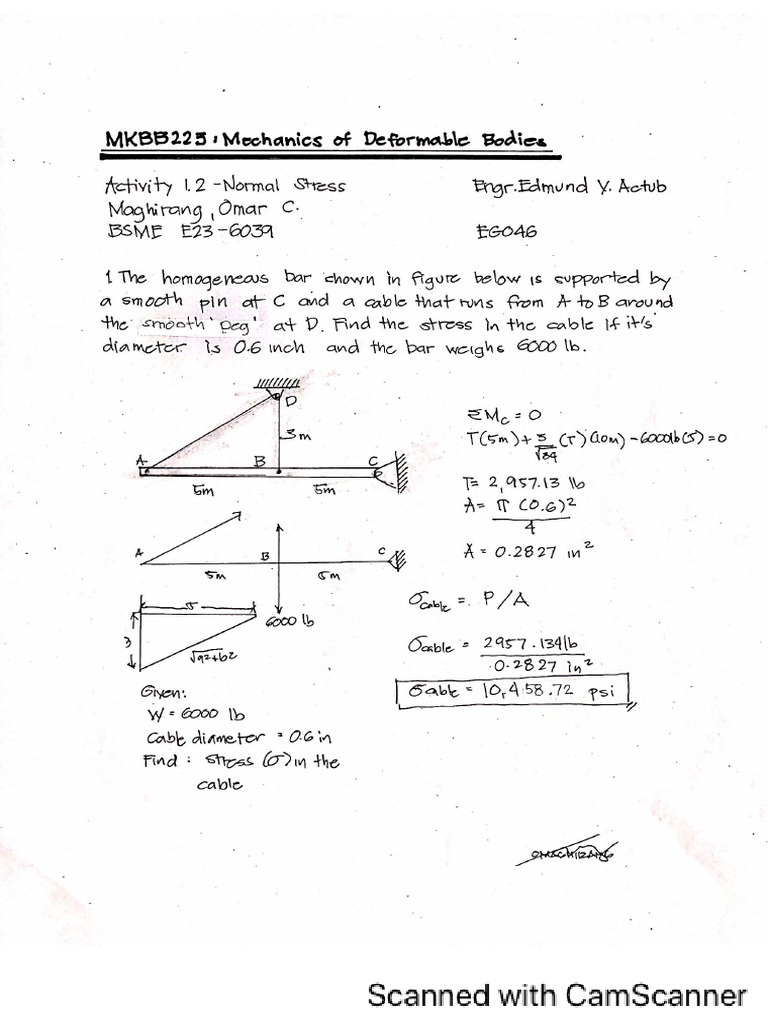 MKBB223: Mechanics of Deformable Bodies
Activity 1.2 - Normal Stress
Engr. Edmund Y. Actub
Maghirang, Omar C.
BSME E23-6039
EG046
1. The homogeneous bar shown in figure below is supported by
a smooth pin at C and a cable that runs from A to B around
the smooth 'peg' at D. Find the stress in the cable if it's
diameter is 0.6 inch and the bar weighs 6000 lb.
D
3m
A B C
5m 5m
A B C
5m 5m
6000 lb
5
3
√a²+b²
Given:
W = 6000 lb
Cable diameter = 0.6 in
Find: stress (σ) in the
cable
ΣMc = 0
T(5m) + 3/√34 (T)(10m) - 6000lb(5) = 0
T = 2,957.13 lb
A = π(0.6)²
4
A = 0.2827 in²
σcable = P/A
σcable = 2957.134lb
0.2827 in²
σcable = 10,458.72 psi
OMAGHIRANG
Scanned with CamScanner